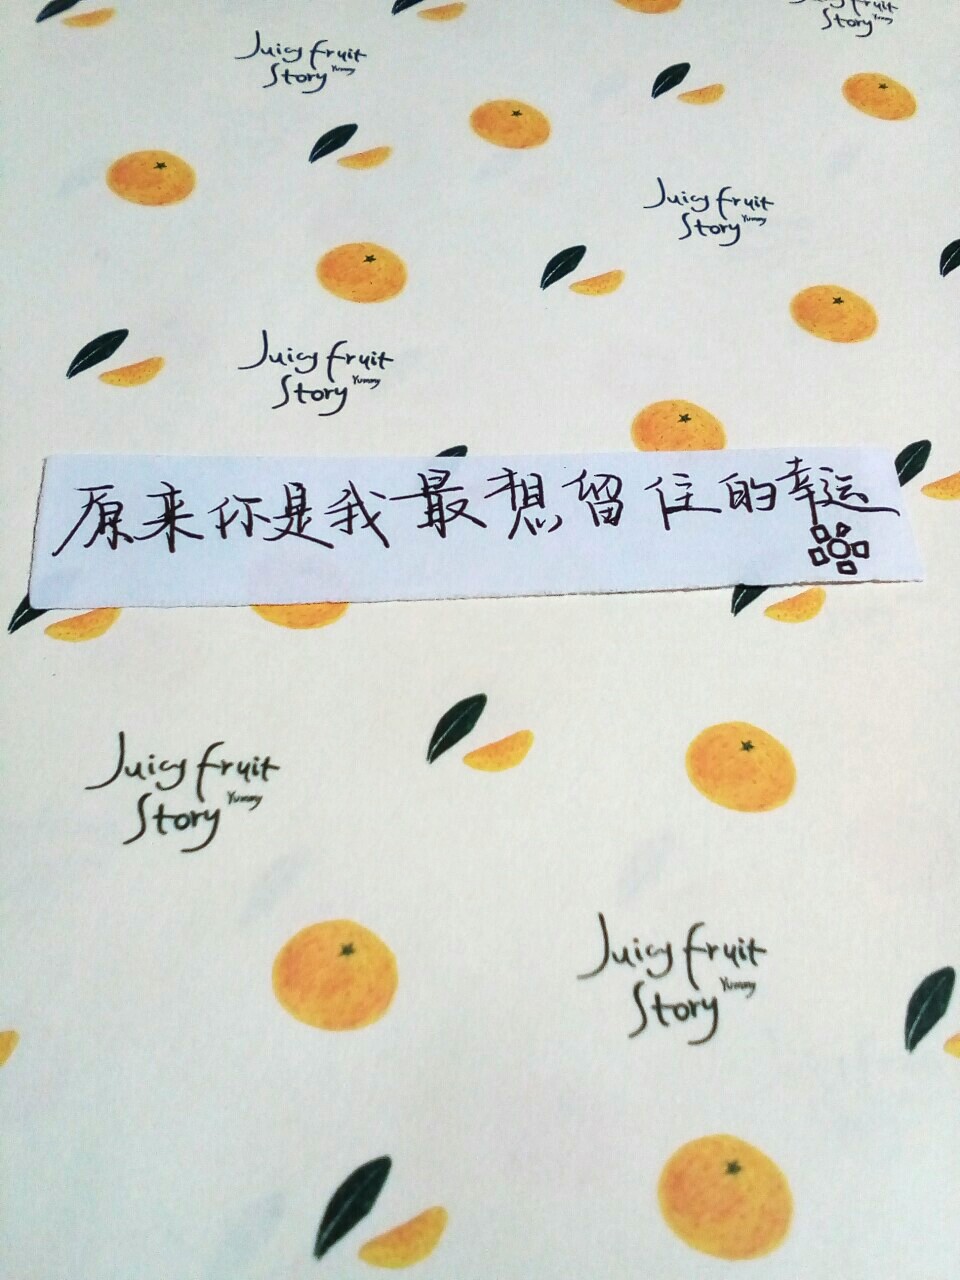 Juicy fruit
Story Yummy
Juicy fruit
Story Yummy
Juicy fruit
Story Yummy
Juicy fruit
Story Yummy
原来你是我最想留住的幸运
Juicy fruit
Story Yummy
Juicy fruit
Story Yummy